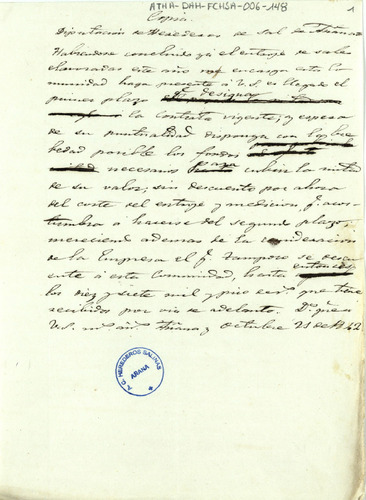 ATHA-DAH-FCHSA-006-148
1
Copia
Diputacion de Herederos de Sal de Añana
Habiendose concluido ya el entroje de sales
elavoradas este año me encarga esta Co
munidad haga presente á V.S. es llegado el
primer plazo qe. designa
la Contrata vigente; y espera
de su puntualidad disponga con la bre
bedad posible los fondos
necesarios para cubrir la mitad
de su valor; sin descuento por ahora
del coste del entroje y medicion qe. acos-
tumbra á hacerse del segundo plazo
mereciendo ademas de la consideracion
de la Empresa el qe. tampoco se descu
ente á esta Comunidad, hasta entonces
los diez y siete mil y pico rs. que tiene
recibidos por via de adelanto. Ds. gue. á
V.S. ms. as. Añana y Octubre 21 de 1842
A. C. HEREDEROS SALINAS
AÑANA